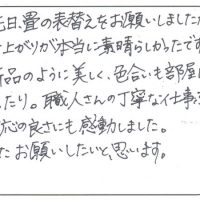 日、畳の表替えをお願いしました
上がりが本当に素晴らしかったです
品のように美しく、色合いも部屋
たり。職人さんの丁寧な仕事
応の良さにも感動しました。
たお願いしたいと思います。